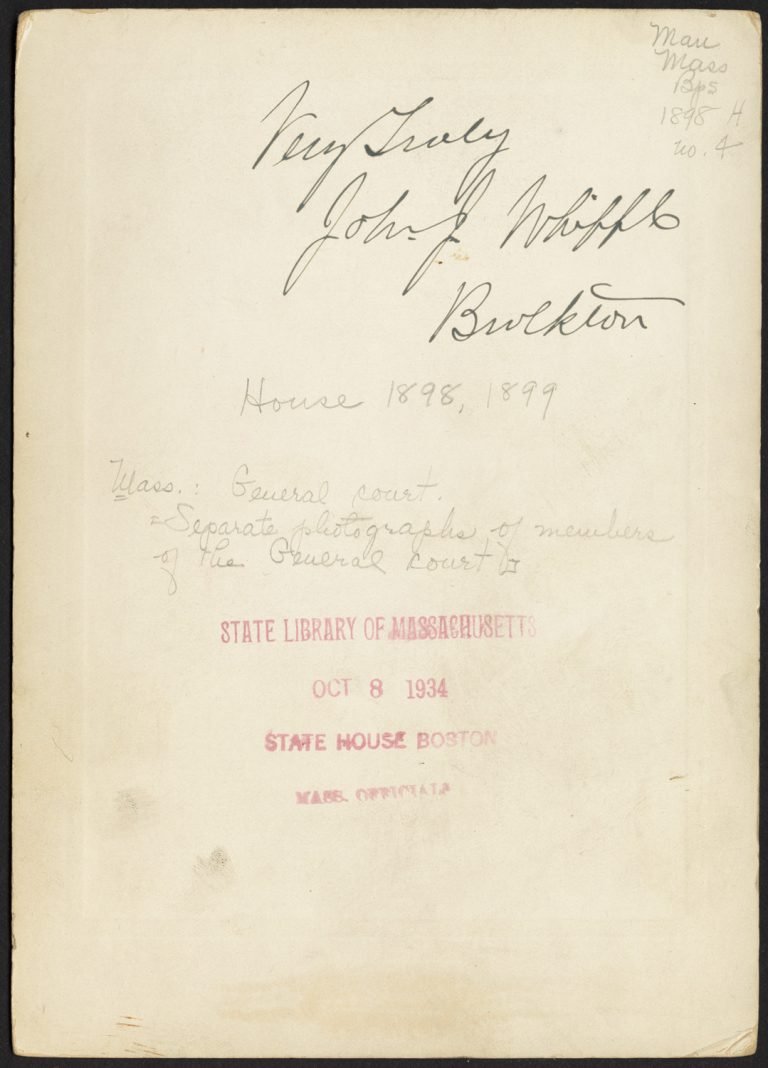 Man
Mass
Bps
1898 H
no. 4
Very Truly
John J. Whipple
Brockton
House 1898, 1899
Mass. : General court.
=Separate photographs of members
of the General court
STATE LIBRARY OF MASSACHUSETTS
OCT 8 1934
STATE HOUSE BOSTON
MASS. OFFICIALS